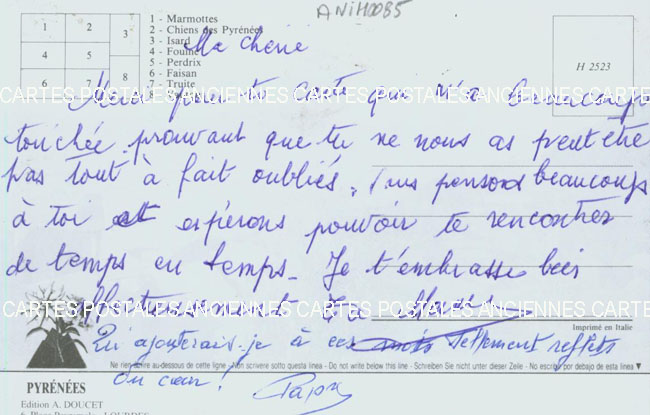 ANIM0085
1 - Marmottes
2 - Chiens des Pyrénées
3 - Isard
4 - Fouine
5 - Perdrix
6 - Faisan
7 - Truite
8
1 2 3
4 5
6 7 8
H 2523
Ma chérie
Merci pour ta carte qui m'a beaucoup
CARTES POSTALES ANCIENNES CARTES POSTALES ANCIENNES CARTES
touchée prouvant que tu ne nous as peut être
pas tout à fait oubliés. Nous pensons beaucoup
à toi et espérons pouvoir te rencontrer
de temps en temps - Je t'embrasse bien
affectueusement Ta
CARTES POSTALES ANCIENNES CARTES POSTALES ANCIENNES CARTE
Imprimé en Italie
Qu'ajouterais-je à ces mots tellement reflets
Ne rien écrire au-dessous de cette ligne - Non scrivere sotto questa linea - Do not write below this line - Schreiben Sie nicht unter dieser Zeile - No escriba por debajo de esta línea
du cœur! Papy
PYRÉNÉES
Edition A. DOUCET
LOURDES